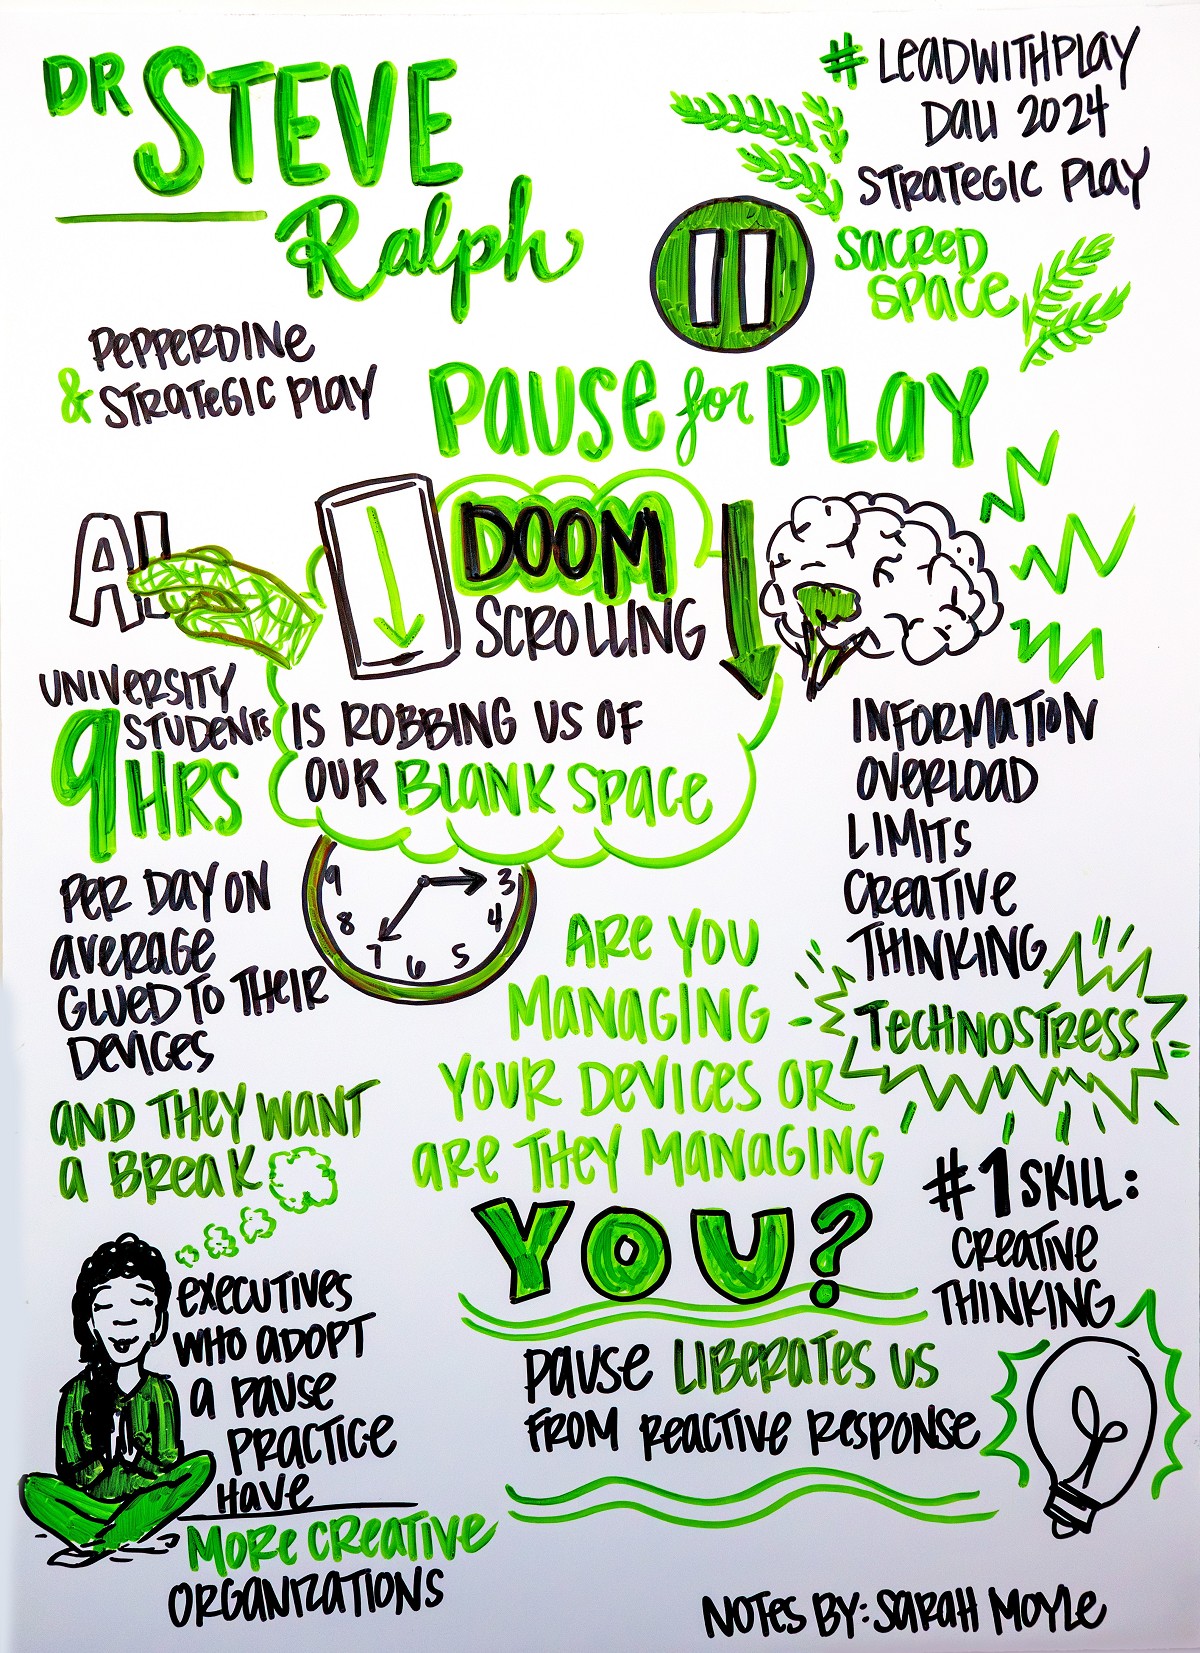 DR STEVE
Ralph
#LEADWITHPLAY
DALI 2024
STRATEGIC PLAY
SACRED
SPACE
PEPPERDINE
& STRATEGIC PLAY
PAUSE for PLAY
AI
DOOM
SCROLLING
IS ROBBING US OF
OUR BLANK SPACE
UNIVERSITY
STUDENTS
9 HRS
PER DAY ON
AVERAGE
GLUED TO THEIR
DEVICES
AND THEY WANT
A BREAK
9 8 7 6 5 4 3
INFORMATION
OVERLOAD
LIMITS
CREATIVE
THINKING
TECHNOSTRESS
ARE YOU
MANAGING
YOUR DEVICES OR
ARE THEY MANAGING
YOU?
#1 SKILL:
CREATIVE
THINKING
EXECUTIVES
WHO ADOPT
A PAUSE
PRACTICE
HAVE
MORE CREATIVE
ORGANIZATIONS
PAUSE LIBERATES US
FROM REACTIVE RESPONSE
NOTES BY: SARAH MOYLE